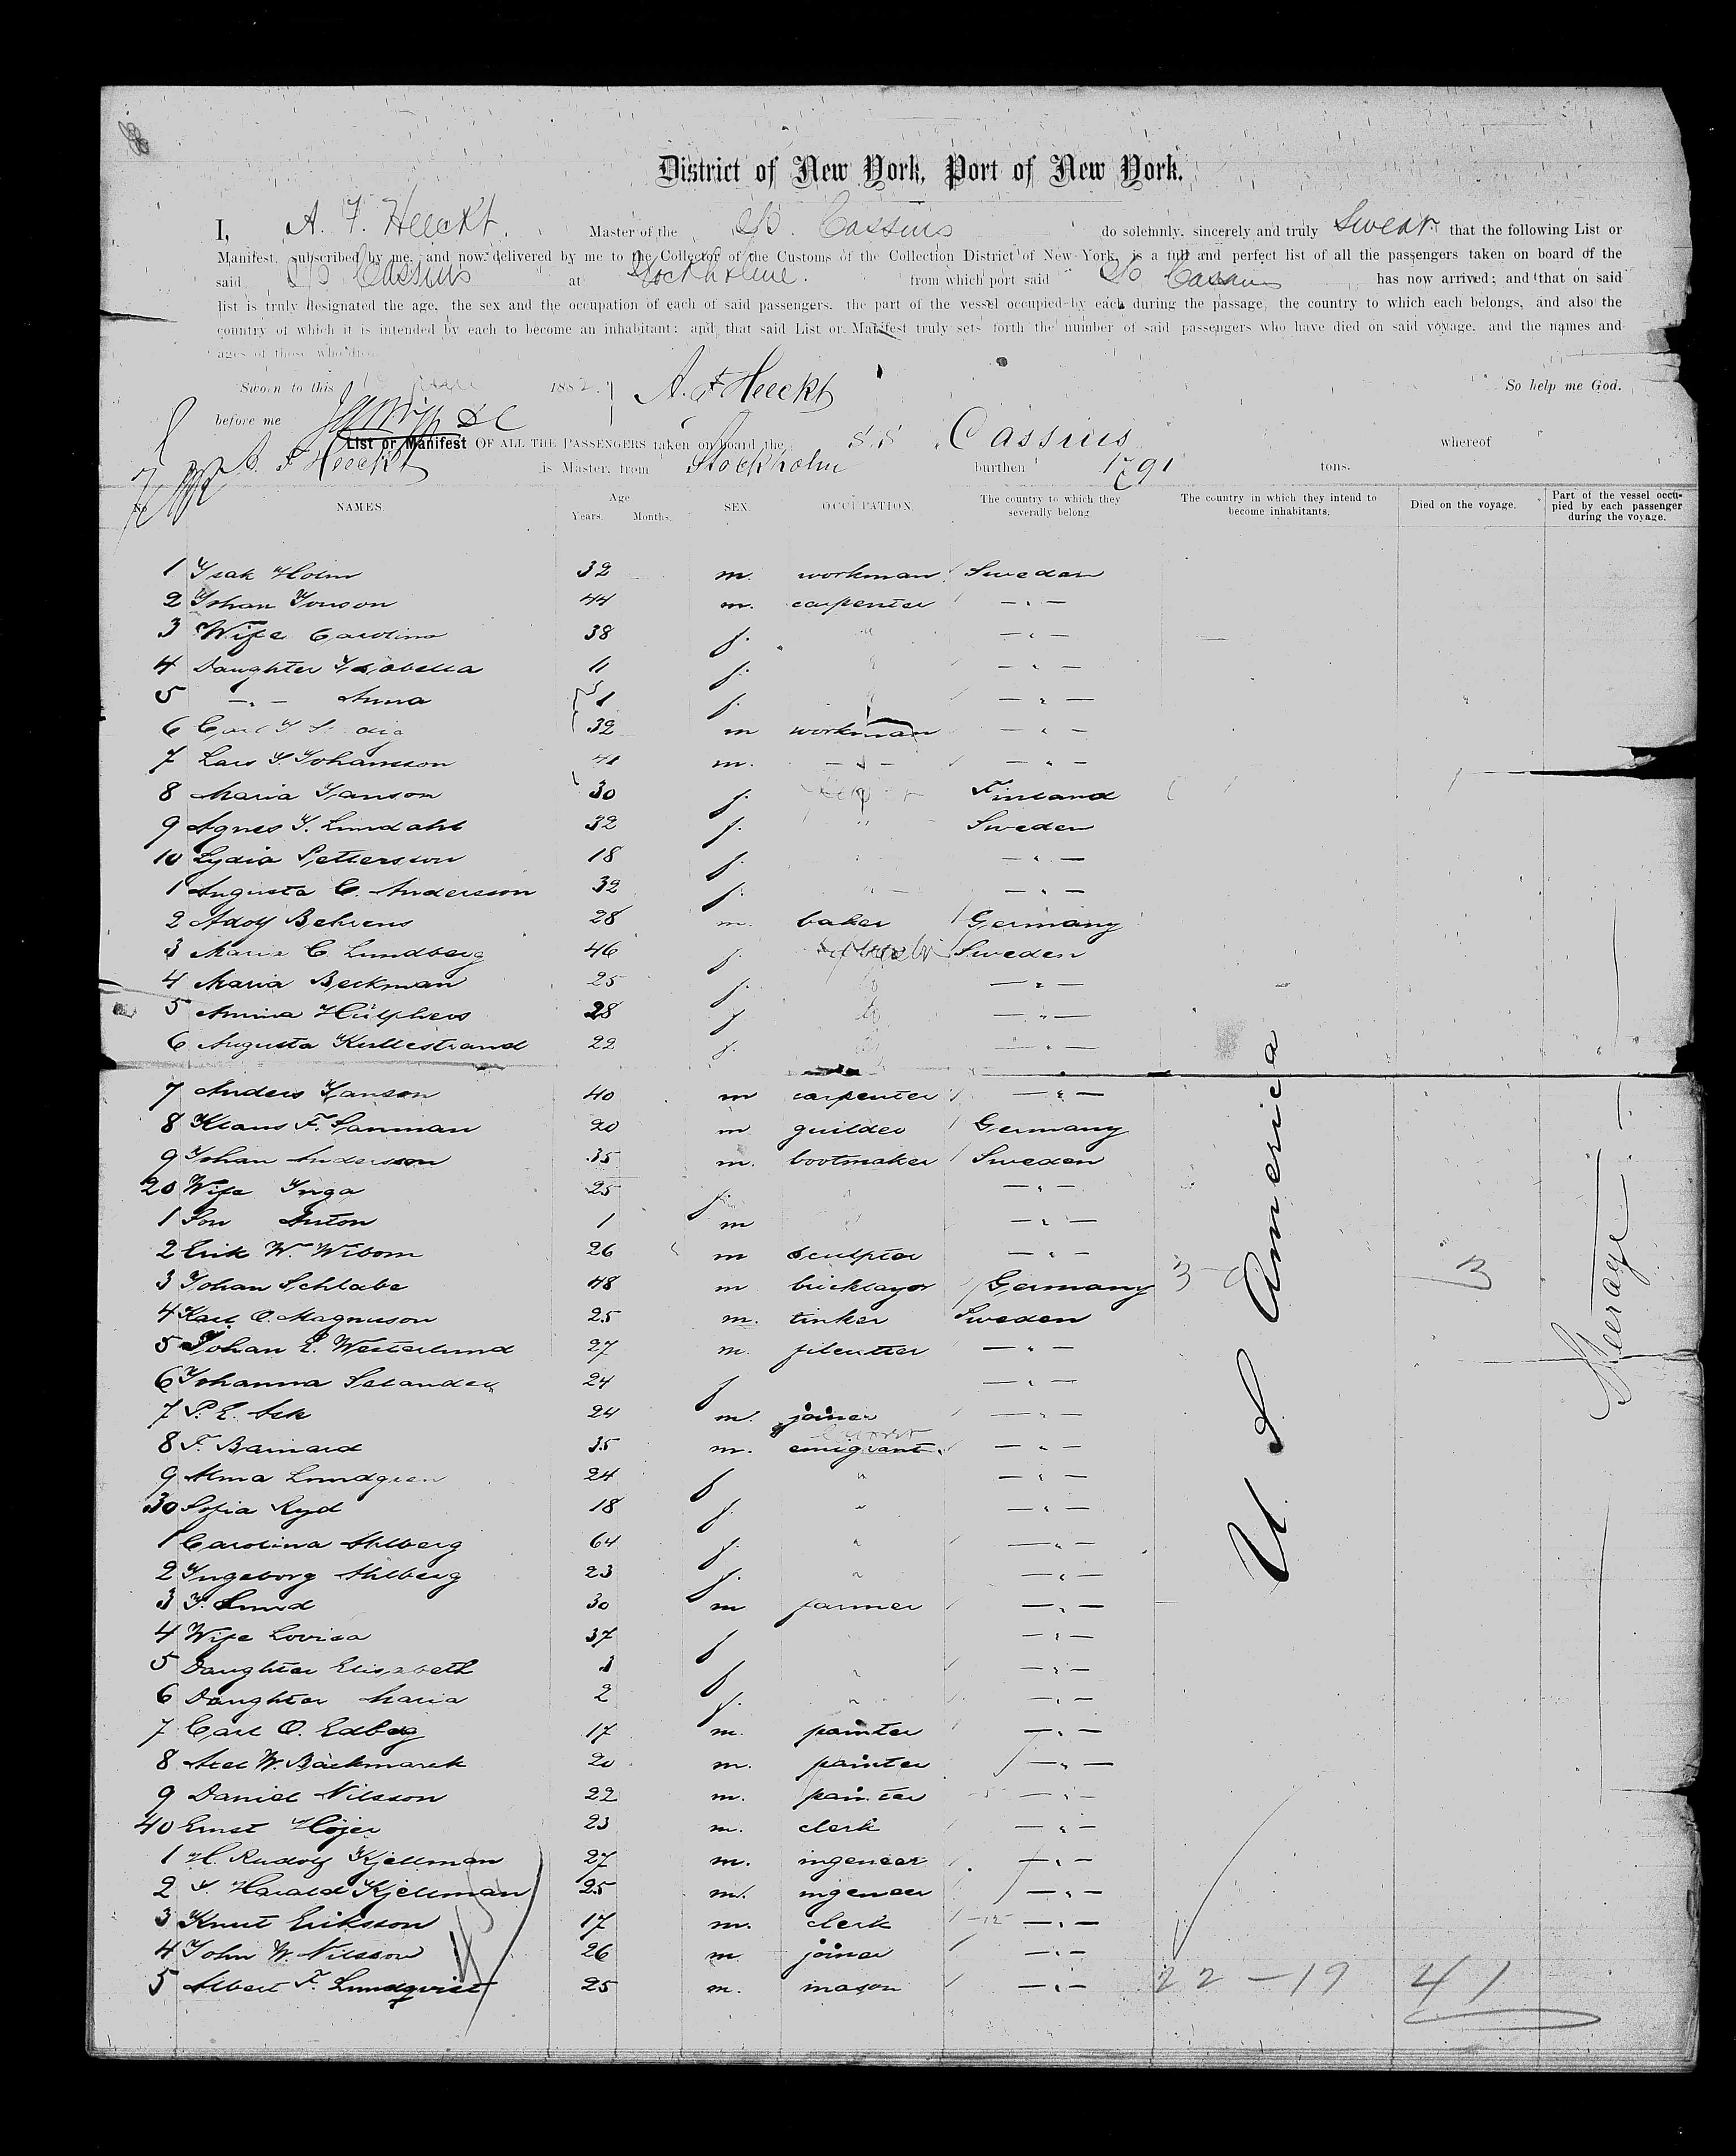 District of New York, Port of New York.
I, A. F. Heeckt. Master of the S/S. Cassius do solemnly, sincerely and truly Swear that the following List or
Manifest, subscribed by me, and now delivered by me to the Collector of the Customs of the Collection District of New York, is a full and perfect list of all the passengers taken on board of the
said S/S Cassius at Stockholm. from which port said S/S Cassius has now arrived; and that on said
list is truly designated the age, the sex and the occupation of each of said passengers, the part of the vessel occupied by each during the passage, the country to which each belongs, and also the
country of which it is intended by each to become an inhabitant; and that said List or Manifest truly sets forth the number of said passengers who have died on said voyage, and the names and
ages of those who died.
Sworn to this June 1882. A. F Heeckt So help me God.
before me
List or Manifest OF ALL THE PASSENGERS taken on board the S.S. Cassius whereof
A. F Heeckt is Master, from Stockholm burthen 1791 tons.
No NAMES. Age Years. Months. SEX. OCCUPATION. The country to which they severally belong. The country in which they intend to become inhabitants. Died on the voyage. Part of the vessel occupied by each passenger during the voyage.
1 Isak Holm 32 m. workman Sweden
2 Johan Jonson 44 m. carpenter — " —
3 Wife Carolina 38 f. " — " —
4 Daughter Isabella 11 f. — " —
5 — " — Anna 1 f. — " —
6 Carl 32 m workman — " —
7 Lars J Johansson 41 m. — " — — " —
8 Maria Janson 30 f. Finland
9 Agnes J. Lundahl 32 f. " Sweden
10 Lydia Pettersson 18 f. — " —
1 Augusta C. Andersson 32 f. — " —
2 Adolf Behrens 28 m. baker Germany
3 Maria C Lundberg 46 f. Sweden
4 Maria Beckman 25 f. — " —
5 Amina Hülphers 28 f — " —
6 Augusta Kullestrand 22 f. — " —
7 Anders Janson 40 m carpenter — " —
8 Klaus F. Sanman 20 m guilder Germany
9 Johan Andersson 35 m. bootmaker Sweden
20 Wife Inga 25 f. — " —
1 Son Anton 1 m — " —
2 Erik W. Wibom 26 m sculptor — " —
3 Johan Schlabe 48 m bricklayor Germany 3 3
4 Karl O. Magnuson 25 m. tinker Sweden
5 Johan E. Westerlund 27 m. filcutter — " —
6 Johanna Selander 24 f — " —
7 P. E. Ask 24 m. joiner — " —
8 F. Barnard 35 m. emigrant — " —
9 Alma Lundgren 24 f " — " —
30 Sofia Ryd 18 f. " — " —
1 Carolina Ahlberg 64 f. " — " —
2 Ingeborg Ahlberg 23 f. " — " —
3 J. Lund 30 m farmer — " —
4 Wife Lovisa 37 f — " —
5 Daughter Elisabeth f " — " —
6 Daughter Maria 2 f. " — " —
7 Carl O. Edberg 17 m. painter — " —
8 Axel W. Bäckmarck 20 m. painter — " —
9 Daniel Nilsson 22 m. painter — " —
40 Ernst Höjer 23 m. clerk — " —
1 H. Rudolf Kjellman 27 m. ingeneer — " —
2 J. Harald Kjellman 25 m. ingeneer — " —
3 Knut Eriksson 17 m. clerk — " —
4 John W. Nilsson 26 m joiner — " —
5 Albert F. Lundqvist 25 m. mason — " — 22 — 19 41
U. S. America
Steerage